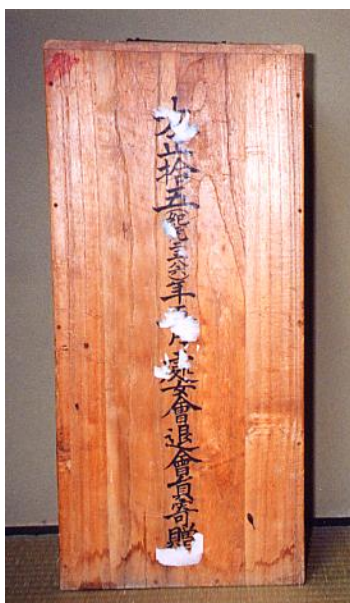 大正拾五紀元二五八六年月處女會退會員寄贈